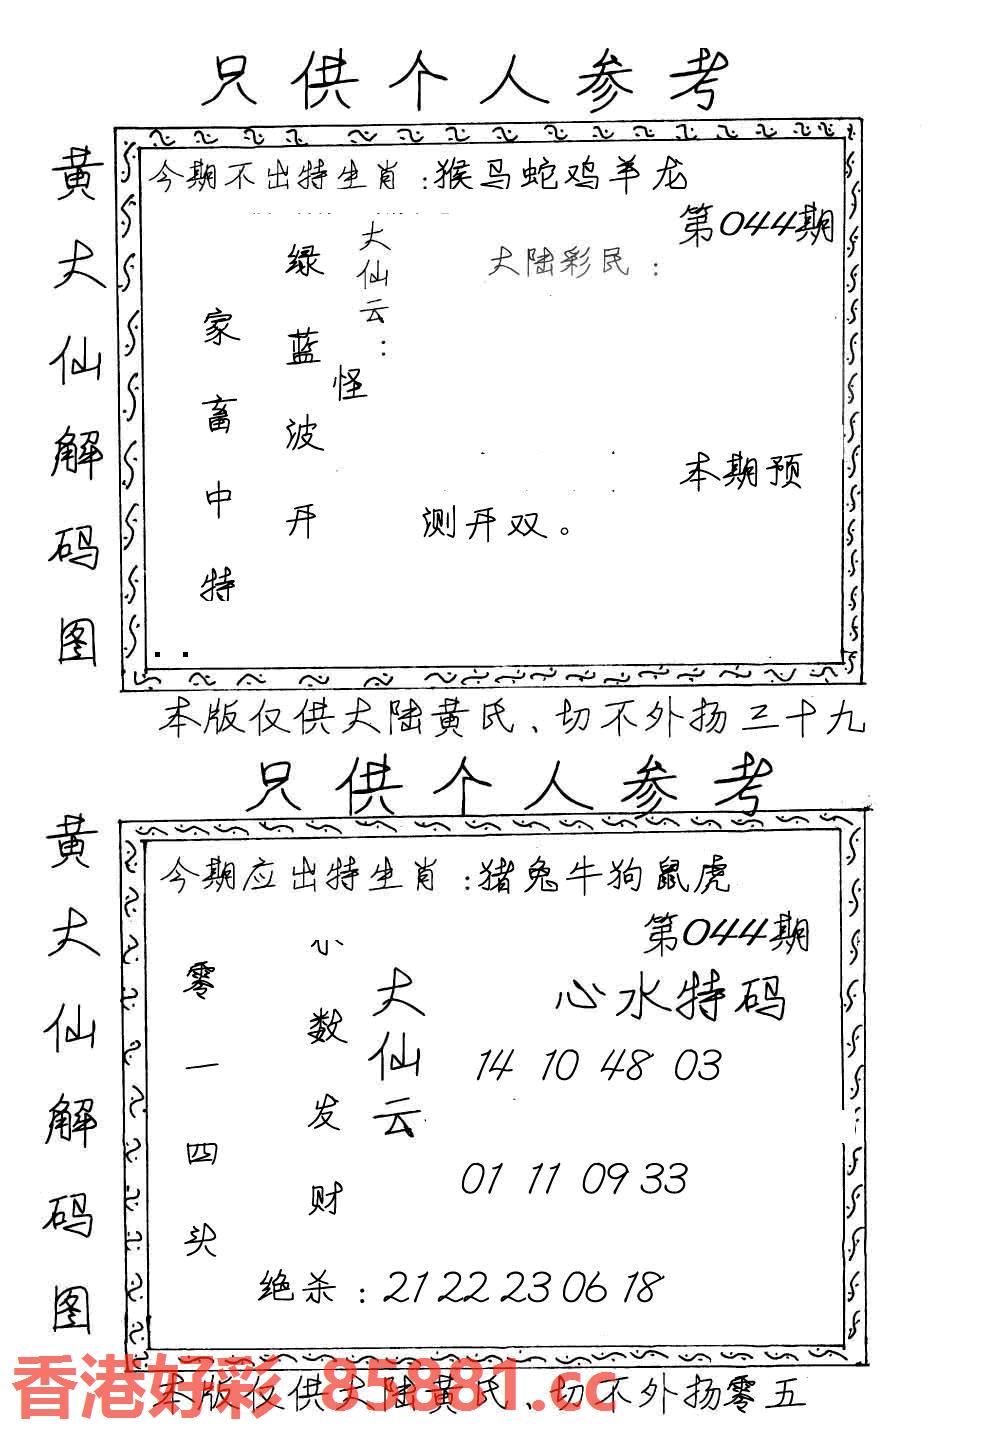 只供个人参考
黄大仙解码图
今期不出特生肖：猴马蛇鸡羊龙
第044期
大仙云：
大陆彩民：
绿蓝波开
家畜中特
怪
本期预
测开双。
本版仅供大陆黄氏、切不外扬三十九
只供个人参考
黄大仙解码图
今期应出特生肖：猪兔牛狗鼠虎
第044期
小数发财
零一四头
大仙云
心水特码
14 10 48 03
01 11 09 33
绝杀：21 22 23 06 18
香港好彩 85881.cc
本版仅供大陆黄氏、切不外扬零五